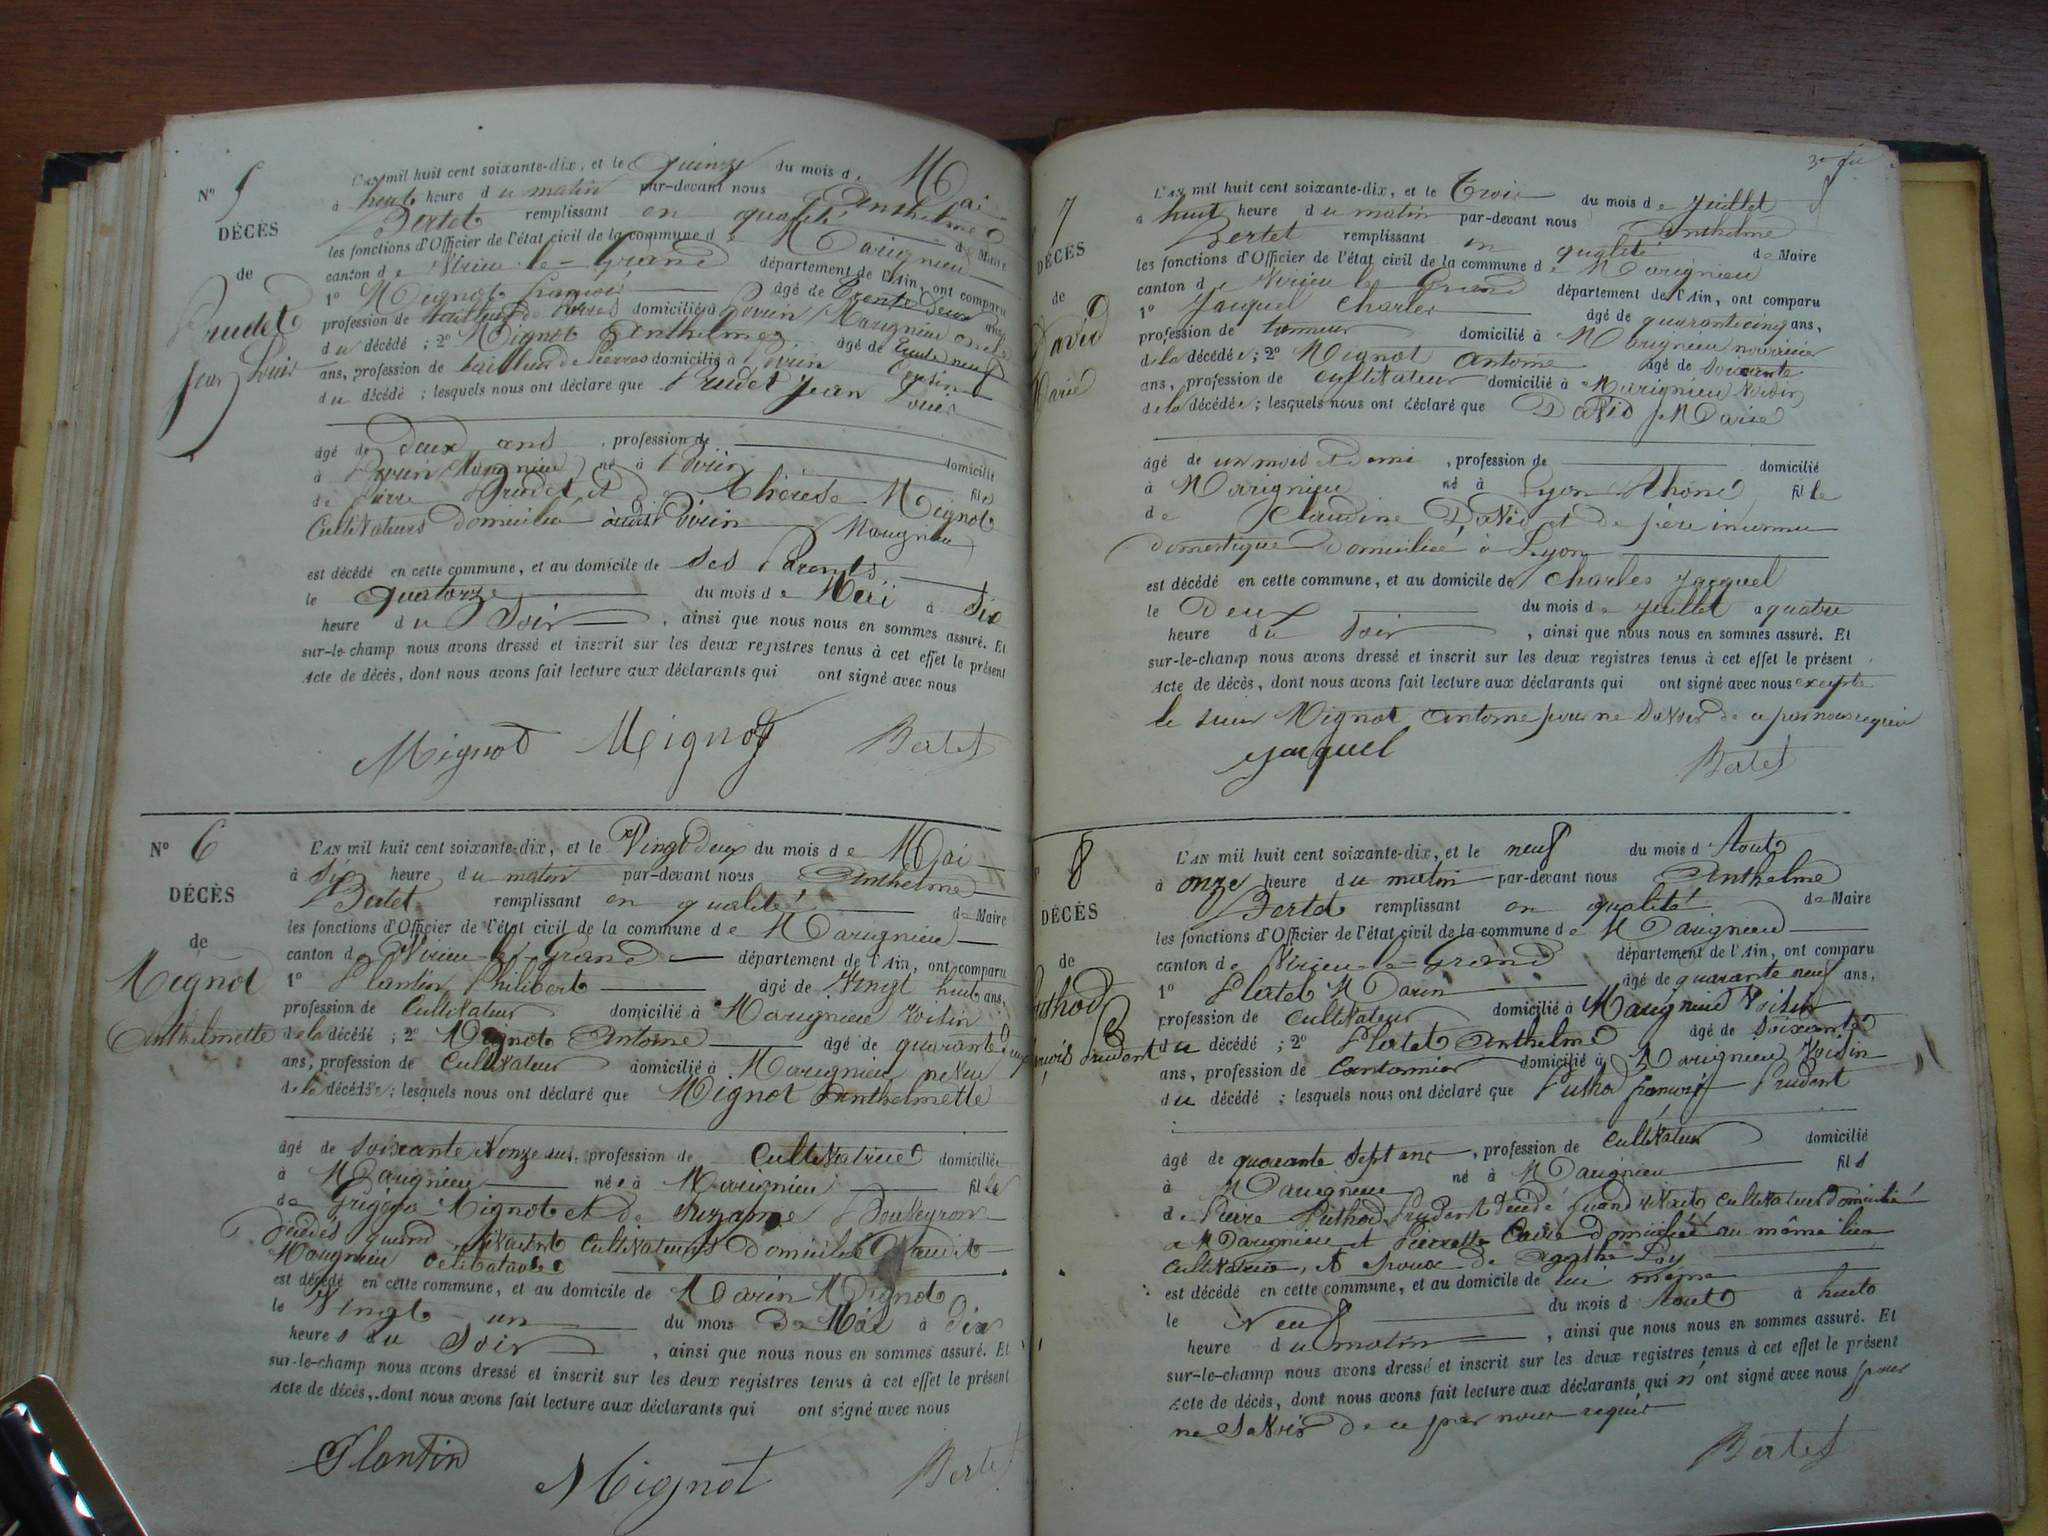 N° 5
DÉCÈS
de
Prudet
Jean Louis
L'AN mil huit cent soixante-dix, et le Quinze du mois de Mai
à huit heure du matin par-devant nous Anthelme
Bertet remplissant en qualité de Maire
les fonctions d'Officier de l'état civil de la commune de Marignieu
canton de Virieu-le-Grand département de l'Ain, ont comparu
1° Mignot françois âgé de Trente deux ans
profession de tailleur de Pierres domicilié à Poirin Marignieu oncle
du décédé ; 2° Mignot Anthelme âgé de Trente neuf
ans, profession de tailleur de Pierres domicilié à Poirin Cousin
du décédé ; lesquels nous ont déclaré que Prudet Jean Louis
âgé de deux ans , profession de domicilié
à Poirin (Marignieu) né à Poirin fils
de Pierre Prudet et de Thérèse Mignot
Cultivateurs domiciliés audit Poirin Marignieu
est décédé en cette commune, et au domicile de ses Parents
le Quatorze du mois de Mai à Six
heure du Soir , ainsi que nous nous en sommes assuré. Et
sur-le-champ nous avons dressé et inscrit sur les deux registres tenus à cet effet le présent
Acte de décès, dont nous avons fait lecture aux déclarants qui ont signé avec nous
Mignot Mignot Bertet
N° 6
DÉCÈS
de
Mignot
Anthelmette
L'AN mil huit cent soixante-dix, et le Vingt deux du mois de Mai
à Six heure du matin par-devant nous Anthelme
Bertet remplissant en qualité de Maire
les fonctions d'Officier de l'état civil de la commune de Marignieu
canton de Virieu-le-Grand département de l'Ain, ont comparu
1° Plantin Philibert âgé de Vingt huit ans,
profession de Cultivateur domicilié à Marignieu Voisin
de la décédé ; 2° Mignot Antoine âgé de quarante deux
ans, profession de Cultivateur domicilié à Marignieu neveu
de la décédée ; lesquels nous ont déclaré que Mignot Anthelmette
âgé de soixante Nonze ans , profession de Cultivatrice domiciliée
à Marignieu née à Marignieu fille
de Grégoire Mignot et de Suzanne Bouveyron
décédés quand vivaient Cultivateurs domiciliés audit
Marignieu célibataire
est décédé en cette commune, et au domicile de Marin Mignot
le Vingt-un du mois de Mai à Dix
heures du Soir , ainsi que nous nous en sommes assuré. Et
sur-le-champ nous avons dressé et inscrit sur les deux registres tenus à cet effet le présent
Acte de décès, dont nous avons fait lecture aux déclarants qui ont signé avec nous
Plantin Mignot Bertet
7
DÉCÈS
de
David
Marie
L'AN mil huit cent soixante-dix, et le Trois du mois de Juillet
à huit heure du matin par-devant nous Anthelme
Bertet remplissant en qualité de Maire
les fonctions d'Officier de l'état civil de la commune de Marignieu
canton de Virieu le Grand département de l'Ain, ont comparu
1° Jacquel Charles âgé de quarante cinq ans,
profession de tanneur domicilié à Marignieu nourricier
de la décédée ; 2° Mignot Antoine âgé de Soixante
ans, profession de Cultivateur domicilié à Marignieu Voisin
de la décédée ; lesquels nous ont déclaré que David Marie
âgé de un mois et demi , profession de domicilié
à Marignieu né à Lyon Rhône fille
de Claudine David et de père inconnu
domestique domiciliée à Lyon
est décédé en cette commune, et au domicile de Charles Jacquel
le Deux du mois de Juillet à quatre
heure du Soir , ainsi que nous nous en sommes assuré. Et
sur-le-champ nous avons dressé et inscrit sur les deux registres tenus à cet effet le présent
Acte de décès, dont nous avons fait lecture aux déclarants qui ont signé avec nous excepté
le sieur Mignot Antoine pour ne savoir de ce par nous requis
Jacquel Bertet
8
DÉCÈS
de
L'AN mil huit cent soixante-dix, et le neuf du mois d'Aout
à onze heure du matin par-devant nous Anthelme
Bertet remplissant en qualité de Maire
les fonctions d'Officier de l'état civil de la commune de Marignieu
canton de Virieu-le-Grand département de l'Ain, ont comparu
1° Pertet Marin âgé de quarante neuf ans,
profession de Cultivateur domicilié à Marignieu Voisin
du décédé ; 2° Pertet Anthelme âgé de Soixante
ans, profession de Cantonnier domicilié à Marignieu Voisin
du décédé ; lesquels nous ont déclaré que Puthod françois Prudent
âgé de quarante sept ans , profession de Cultivateur domicilié
à Marignieu né à Marignieu fils
de Pierre Puthod Prudent décédé quand vivait Cultivateur domicilié
à Marignieu et Pierrette domiciliée au même lieu
Cultivatrice, et époux de Agathe Loy
est décédé en cette commune, et au domicile de lui même
le Neuf du mois d'Aout à huit
heure du matin , ainsi que nous nous en sommes assuré. Et
sur-le-champ nous avons dressé et inscrit sur les deux registres tenus à cet effet le présent
Acte de décès, dont nous avons fait lecture aux déclarants qui n'ont signé avec nous pour
ne savoir de ce par nous requis
Bertet